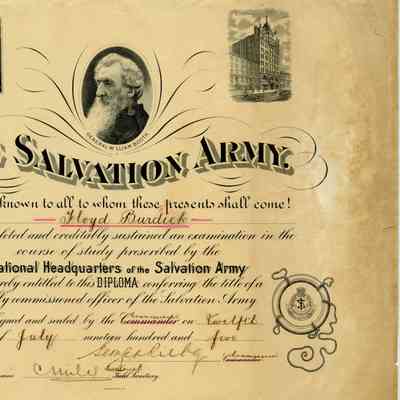 GENERAL WILLIAM BOOTH
E SALVATION ARMY.
known to all to whom these presents shall come!
Floyd Burdick
leted and creditably sustained an examination in the
course of study prescribed by the
ational Headquarters of the Salvation Army
reby entitled to this DIPLOMA conferring the title of a
ly commissioned officer of the Salvation Army
igned and sealed by the Commander on Twelfth
July nineteen hundred and five
Secretary